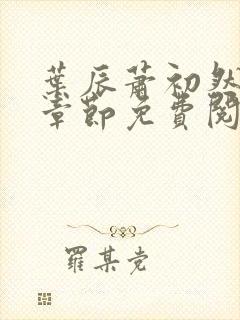 葉辰蕭初然
章節免費閱
羅某党